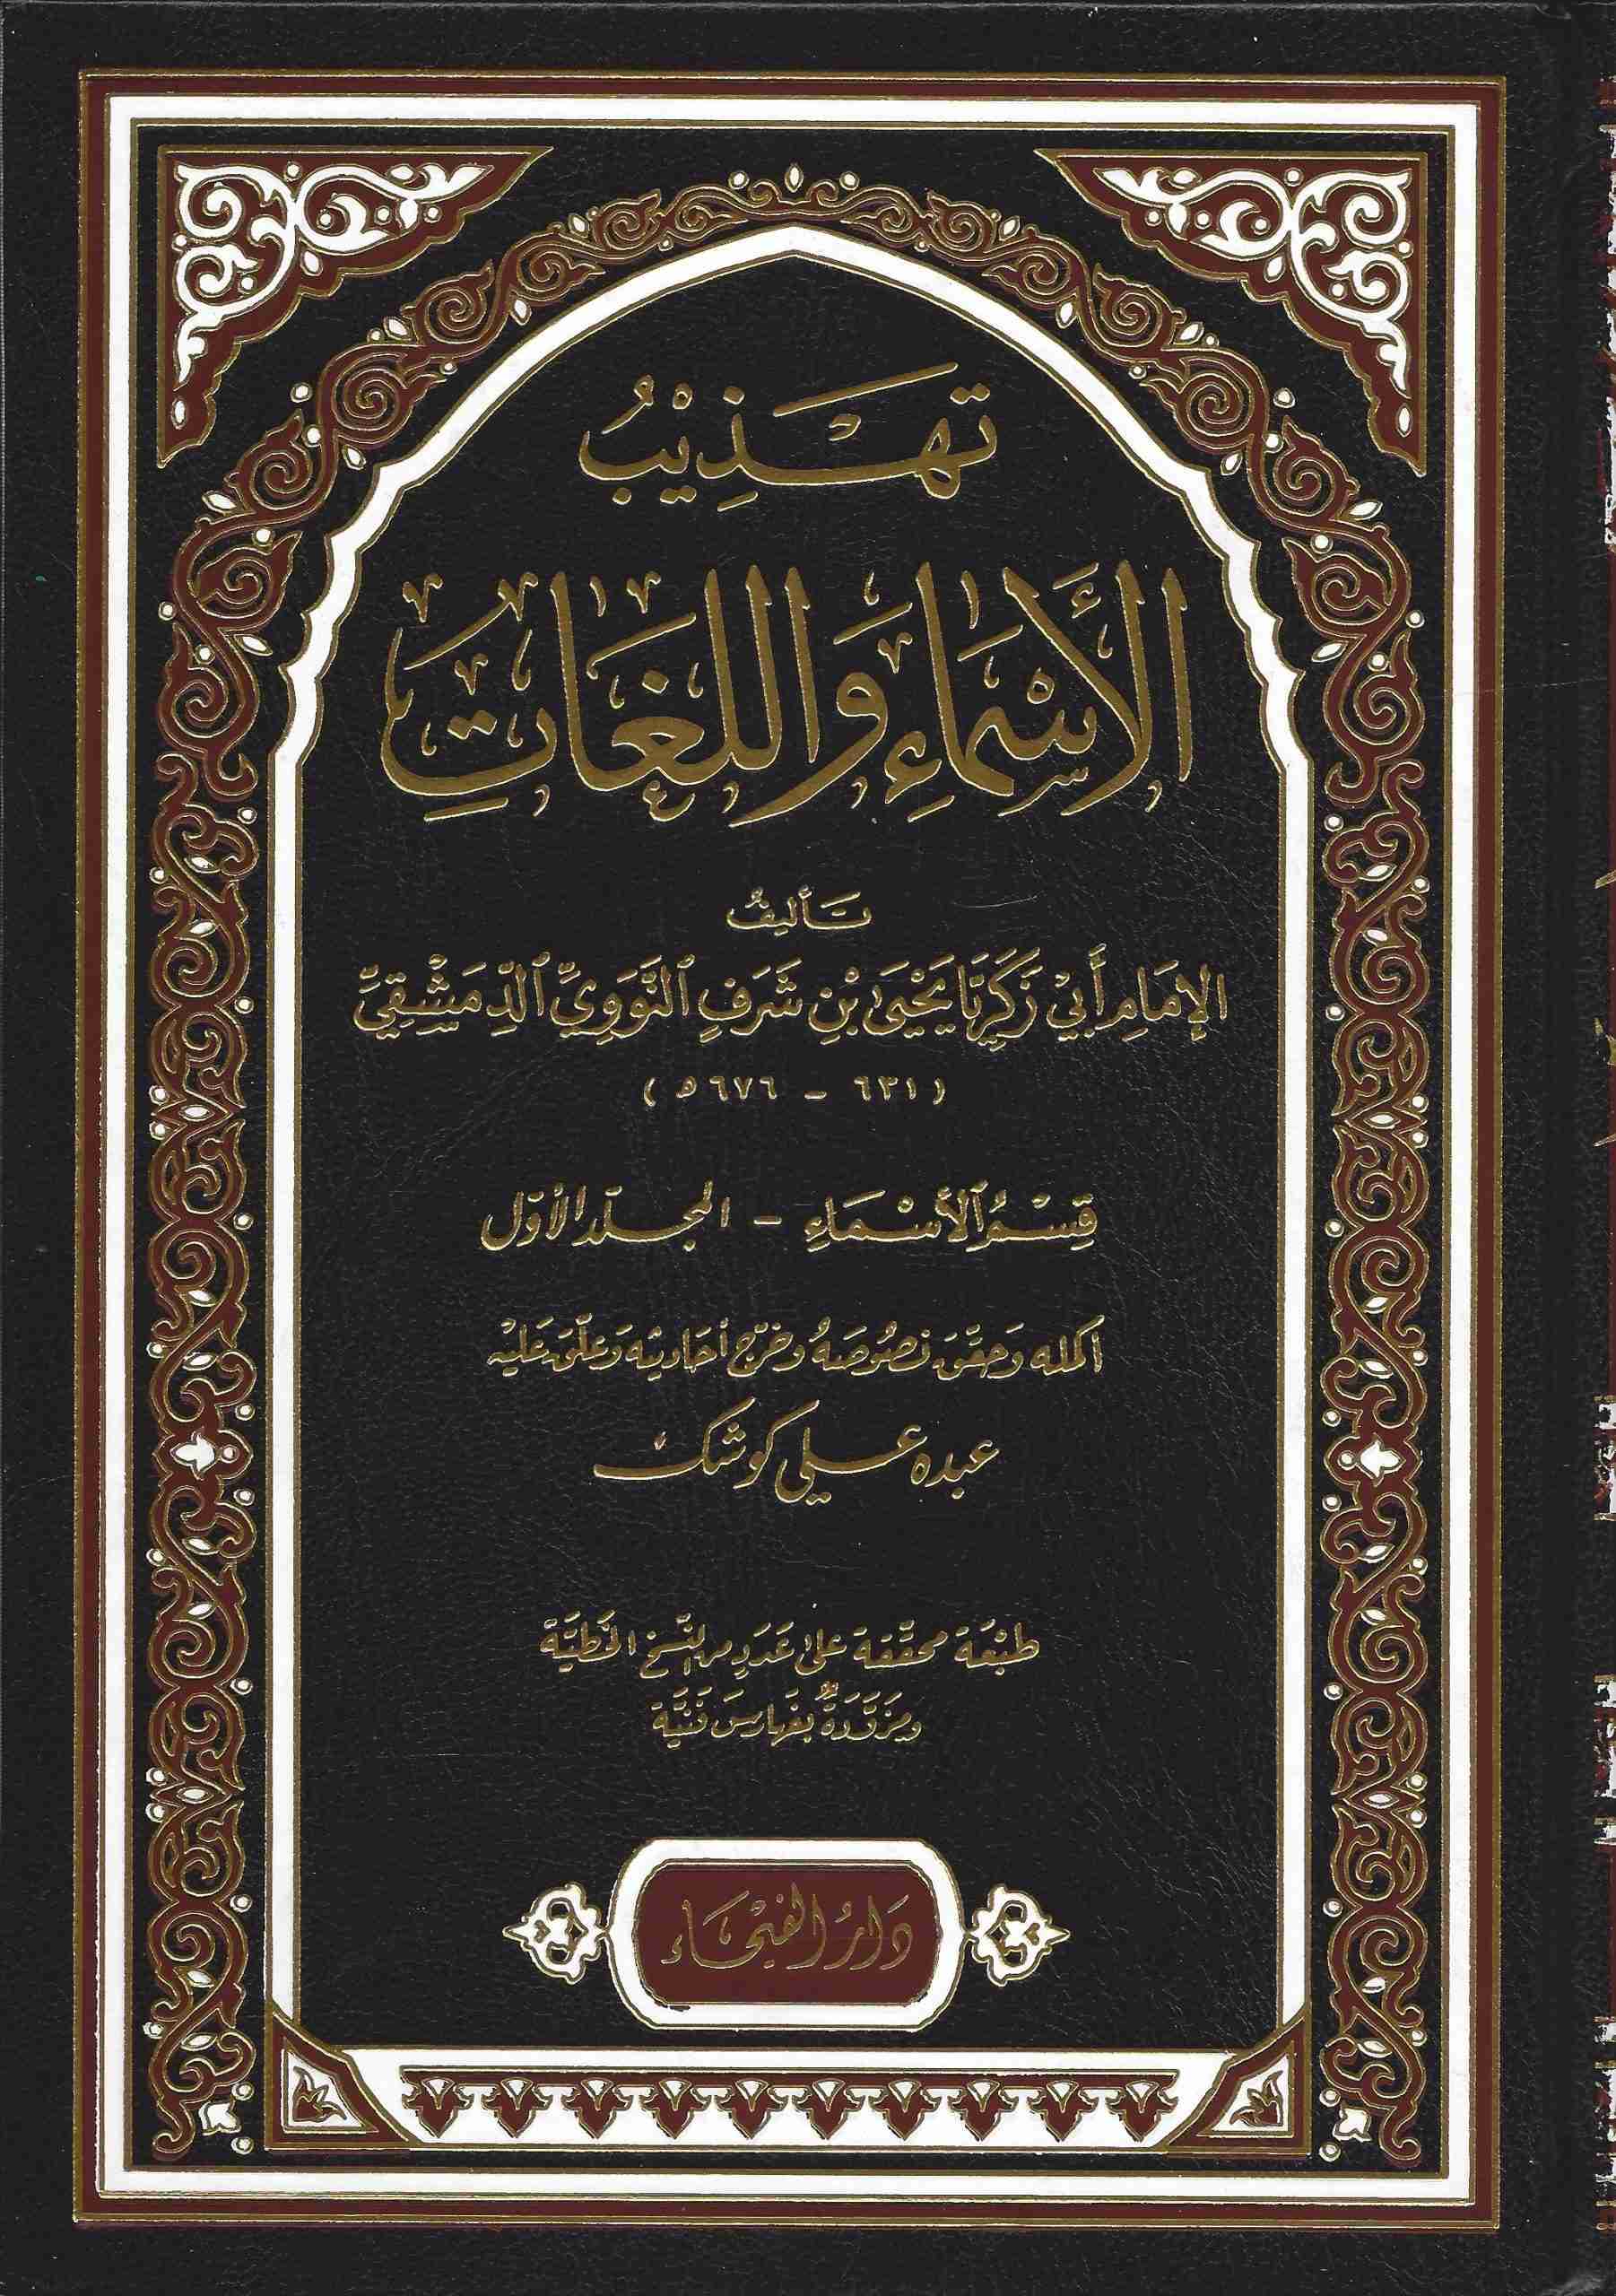 تهذيب
الأسماء واللغات
تأليف
الإمام أبي زكريا يحيى بن شرف النووي الدمشقي
(٦٣١ - ٦٧٦ ه)
قسم الأسماء - المجلد الأول
أكمله وحقق نصوصه وخرج أحاديثه وعلق عليه
عبده علي كوشك
طبعة محققة على عدد من النسخ الخطية
ومزودة بفهارس فنية
دار الفيحاء